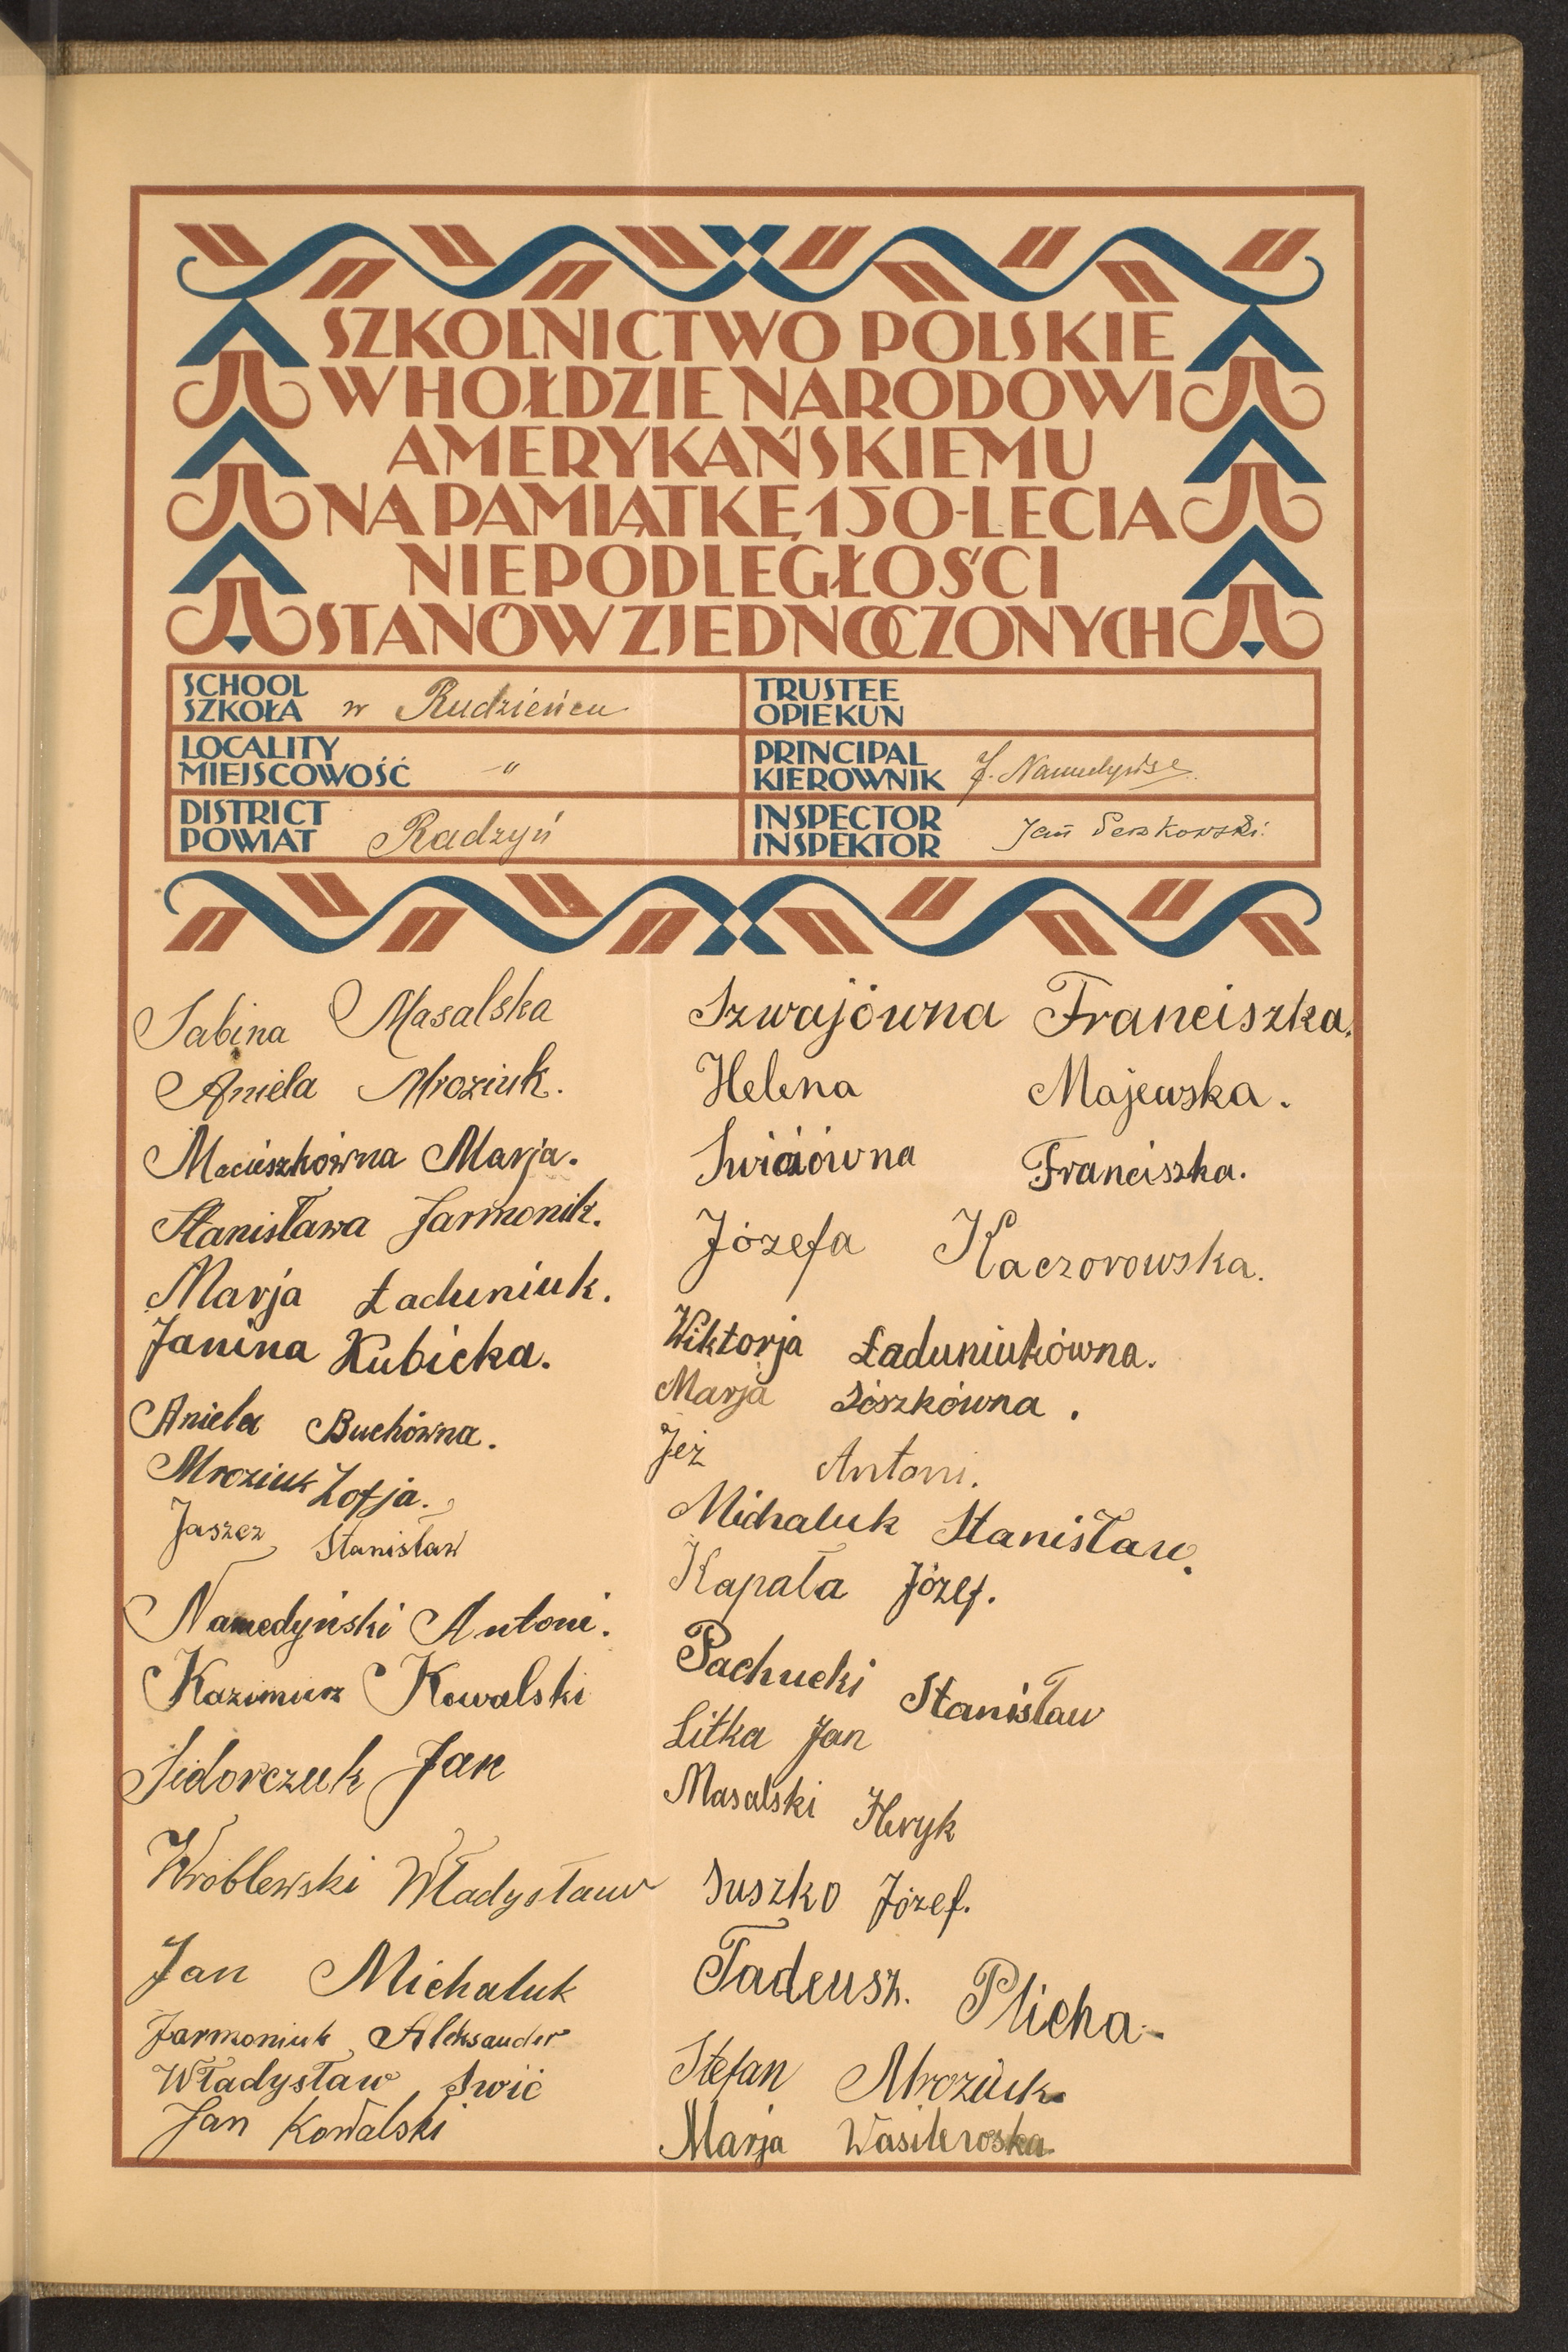 SZKOLNICTWO POLSKIE
W HOŁDZIE NARODOWI
AMERYKAŃSKIEMU
NA PAMIĄTKĘ 150-LECIA
NIEPODLEGŁOŚCI
STANÓW ZJEDNOCZONYCH
SCHOOL
SZKOŁA w Rudzieńcu
LOCALITY
MIEJSCOWOŚĆ -"
DISTRICT
POWIAT Radzyń
TRUSTEE
OPIEKUN
PRINCIPAL
KIEROWNIK J.
INSPECTOR
INSPEKTOR Jan
Sabina Masalska
Aniela Mroziuk.
Macieszkówna Marja.
Stanisława Jarmonik.
Marja Ładuniuk.
Janina Kubicka.
Aniela Buchówna.
Mroziuk Zofja.
Jaszcz Stanisław
Namedyński Antoni.
Kazimierz Kowalski
Sidorczuk Jan
Wróblewski Władysław
Jan Michaluk
Jarmoniuk Aleksander
Władysław Swić
Jan Kowalski
Szwajówna Franciszka.
Helena Majewska.
Franciszka.
Józefa Kaczorowska.
Wiktorja Ładuniukówna.
Marja Sószkówna.
Jeż Antoni.
Michaluk Stanisław.
Kapała Józef.
Pachucki Stanisław
Litka Jan
Masalski Heryk
Suszko Józef.
Tadeusz. Plicha.
Stefan Mroziuk
Marja Wasilewska